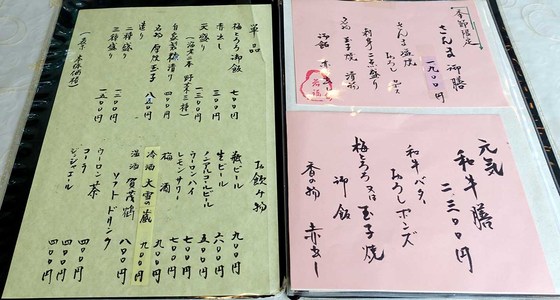 季節限定
さんま御膳
一、九〇〇円
さんま塩焼
おろし ポン酢
御飯 赤出し
元気
和牛膳
二、三〇〇円
和牛バタ
おろしポンズ
梅とろろ又は玉子焼
御飯
香の物 赤出し
単品
梅とろろ御飯 七〇〇円
赤出し 三〇〇円
天盛り 一三〇〇円
（海老二本 野菜三種）
自家製糠漬り
名物 厚焼玉子 八五〇円
造り
二種盛り 一二〇〇円
三種盛り 一八〇〇円
（表示 本体価格）
お飲み物
瓶ビール 九〇〇円
生ビール 六〇〇円
ノンアルコールビール 五〇〇円
ウーロンハイ 七〇〇円
レモンサワー 七〇〇円
梅酒 七〇〇円
冷酒 大雪の蔵 九〇〇円
温酒 賀茂鶴 八〇〇円
ソフトドリンク
ウーロン茶 四〇〇円
コーラ 四〇〇円
ジンジャエール 四〇〇円